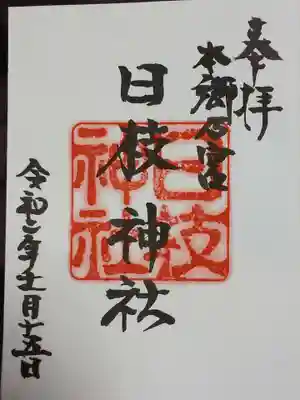 奉拝
本郷乃宮
日枝神社
日枝
神社
令和二年十一月十五日